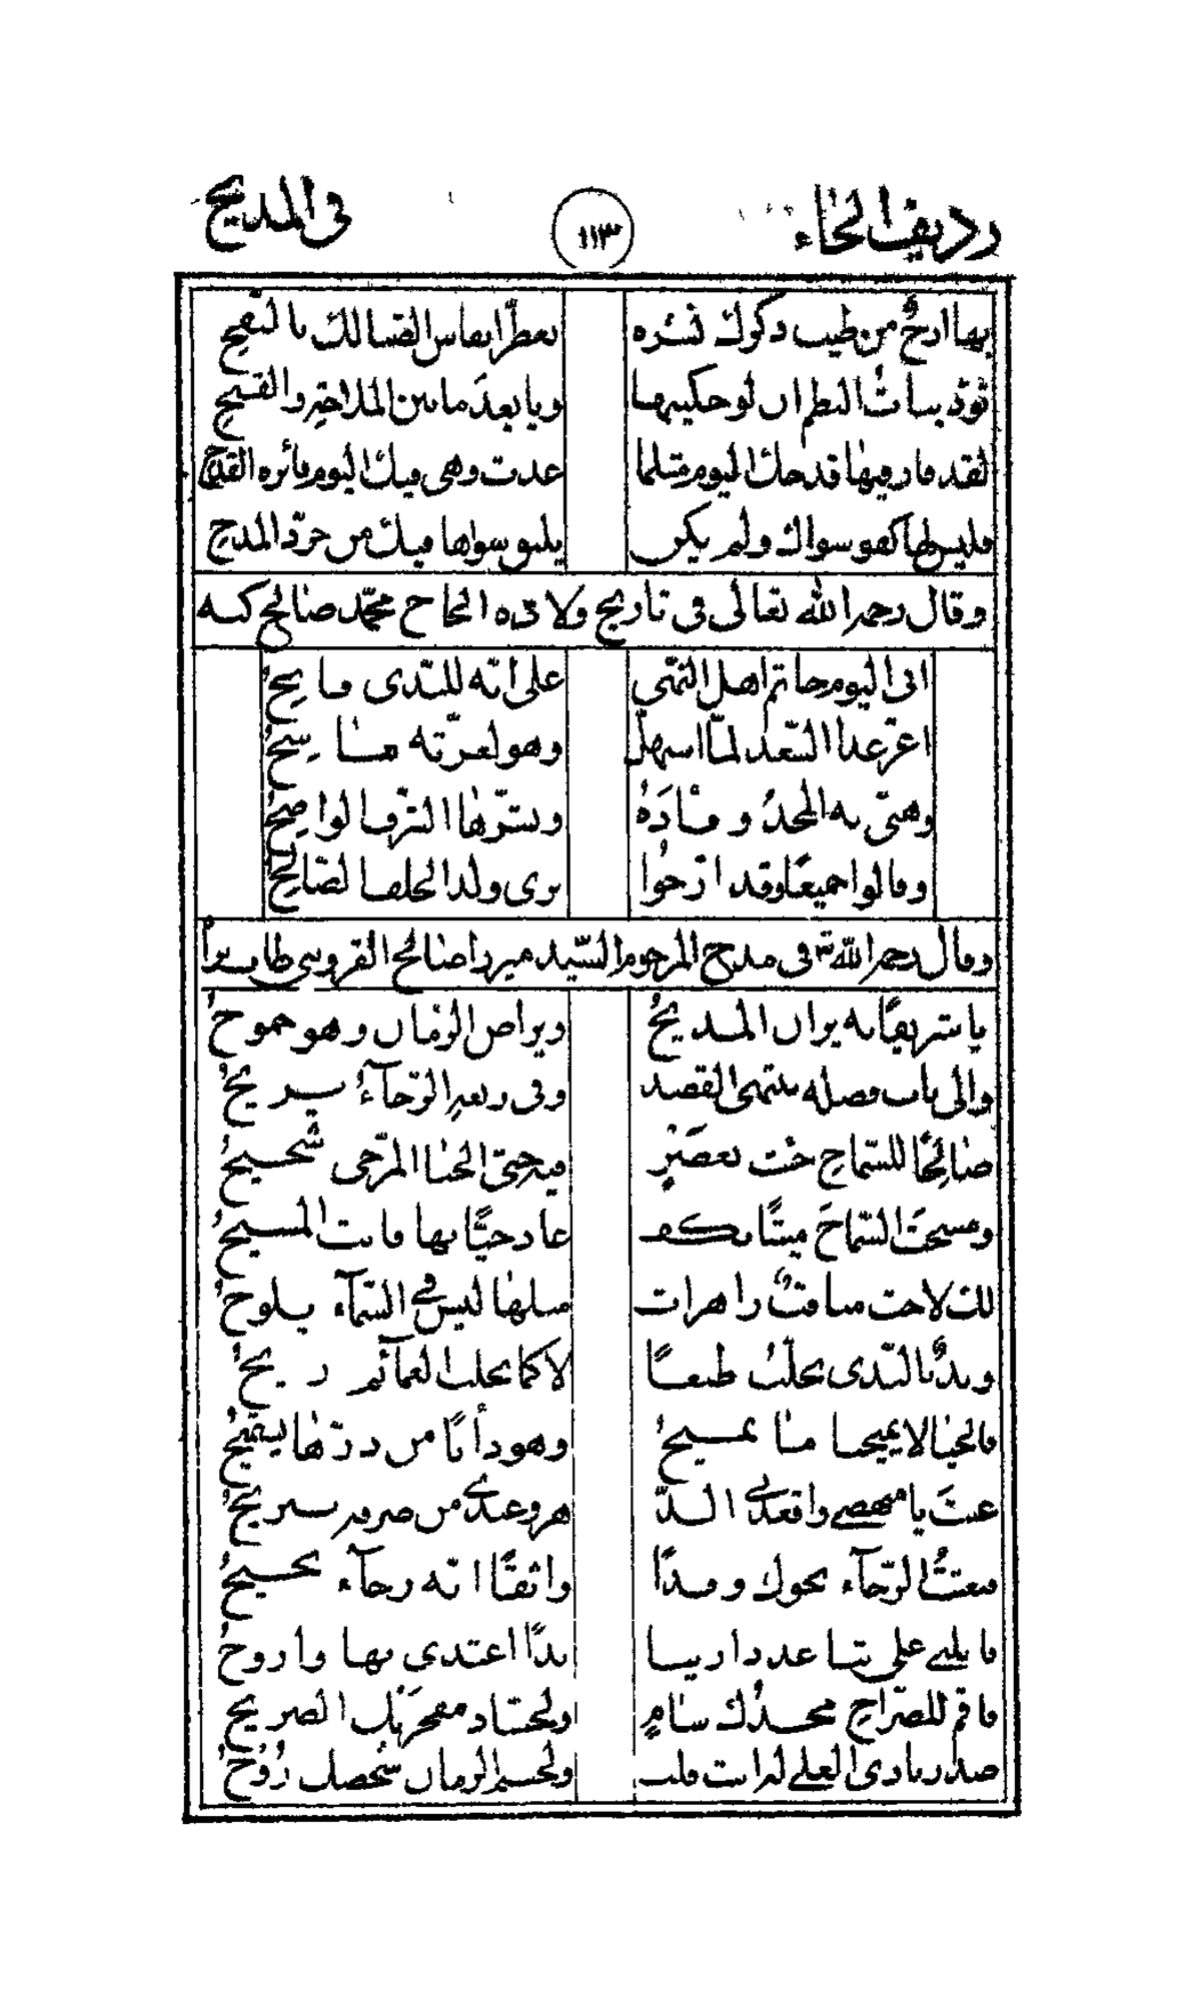 رديف الحاء ١١٣ في المديح
بها ارجٌ من طيب ذكرك نشره يعطّر انفاس الصبا لك بالنفح
تودّ بنات النظم ان لو حكينها ويا بعد ما بين الملاحة والقبح
لقد فاز فيها قدحك اليوم مثلما غدت وهي فيك اليوم فائزه القدح
فليس لها كفو سواك ولم يكن يليق سواها فيك من خرّد المدح
وقال رحمه الله تعالى في تاريخ ولادة الحاج محمّد صالح كبه
اتى اليوم حاتم اهل النهى على أنّه للندى مايحُ
اغرّ غدا السّعد لمّا استهلّ وهو لغرّته ماسحُ
وهنّى به المجدُ وفّادَهُ وبشّرها الشرف الواضحُ
وقالوا جميعًا وقد ارّخوا برى ولد الخلف الصّالحُ
وقال رحمه الله تع في مدح المرحوم السّيد ميرزا صالح القزويني طاب ثراه
يا شريفًا به يزان المديحُ ويراض الزّمان وهو جموحُ
والى باب فضله ينتهى القصد وفي ربعه الرّجآءُ يريحُ
صالحًا للسّماح جئت بعصرٍ فيه حتّى الحيا المرجّى شحيحُ
ومسحتَ السّماحَ ميتًا بكف عاد حيًّا بها فانت المسيحُ
لك لاحت مناقبٌ زاهرات مثلها ليس في السّمآء يلوحُ
ويدٌ بالنّدى تحلّبُ طبعًا لا كما تحلب الغمآئم ريحُ
فالحيا لا يميحنا ما تميحُ وهو دأبًا من درّها يستميحُ
عبتَ يا منهضي واقعدني الدّ هر وعندي من صرفه تبريحُ
فبعثتُ الرّجآء نحوك وفدًا واثقًا انّه رجآء نجيحُ
فابلني على ثنا عدد اربيا بدًا اغتدى بها وأروحُ
فاقم للصّراح مجدك سامٍ ولحسّاد مفخرَيْك الضريحُ
صدر نادي العلى له انت قلب ولجسم الزمان شخصك رُوحُ